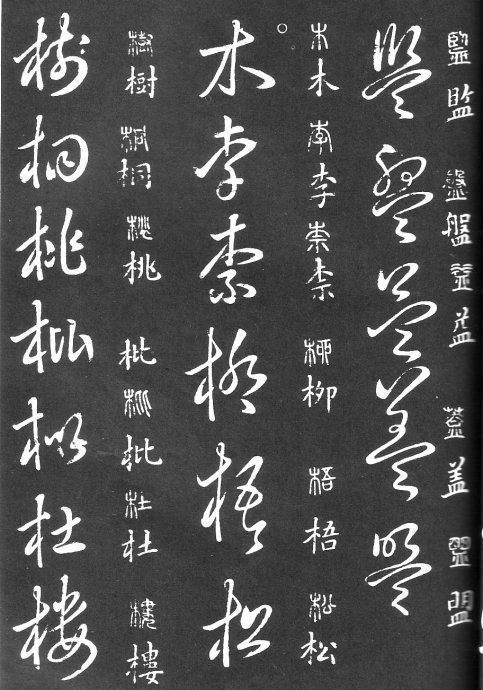 監監盤盤益益蓋盖盟盟
監盤益盖盟
木木李李柰柰柳柳梧梧松松
木李柰柳梧松
樹樹桐桐桃桃枇枇杜杜樓樓
樹桐桃枇杜樓